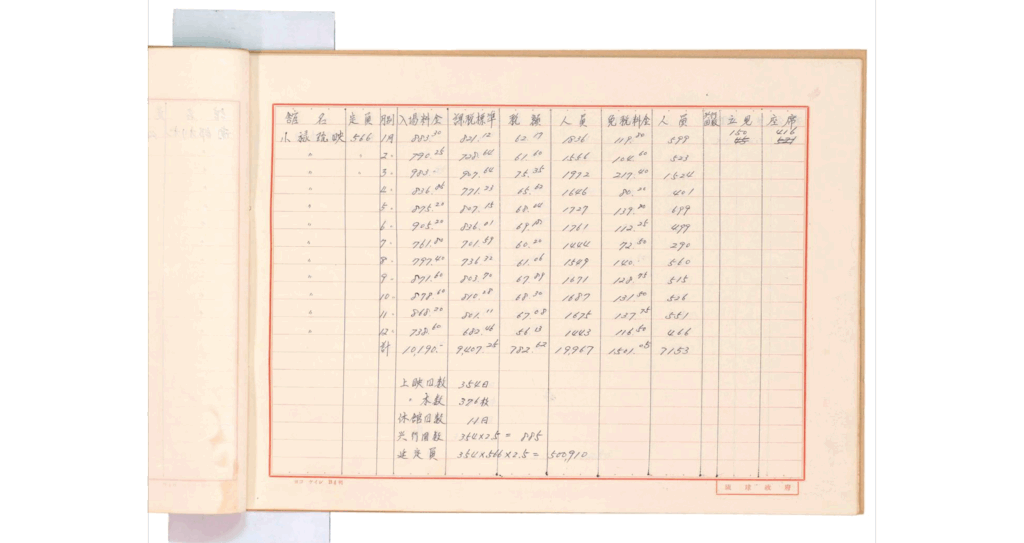 館名 定員 月別 入場料金 課税標準 税額 人員 免税料金 人員 立見 座席
小禄琉映 566 1月 883.30 821.12 62.17 1836 119.80 598 150 416
〃 2〃 790.25 728.64 61.60 1566 104.60 523
〃 〃 3〃 983.- 907.64 75.35 1972 217.40 1524
〃 4〃 836.85 771.23 65.62 1646 80.20 401
〃 5〃 875.20 807.15 68.04 1727 139.80 699
〃 6〃 905.20 836.01 69.18 1761 112.25 499
〃 7〃 761.80 701.59 60.20 1444 72.50 290
〃 8〃 797.40 736.32 61.06 1549 140.- 560
〃 9〃 871.60 803.70 67.89 1671 128.75 515
〃 10〃 878.60 810.08 68.50 1687 131.50 526
〃 11〃 868.20 801.11 67.08 1675 137.75 551
〃 12〃 738.60 682.46 56.13 1443 116.50 466
計 10,190.- 9,407.25 782.62 19,967 1501.05 7153
上映日数 354日
〃 本数 376枚
休館日数 11日
興行回数 354×2.5= 885
延定員 354×566×2.5= 500,910
琉球政府